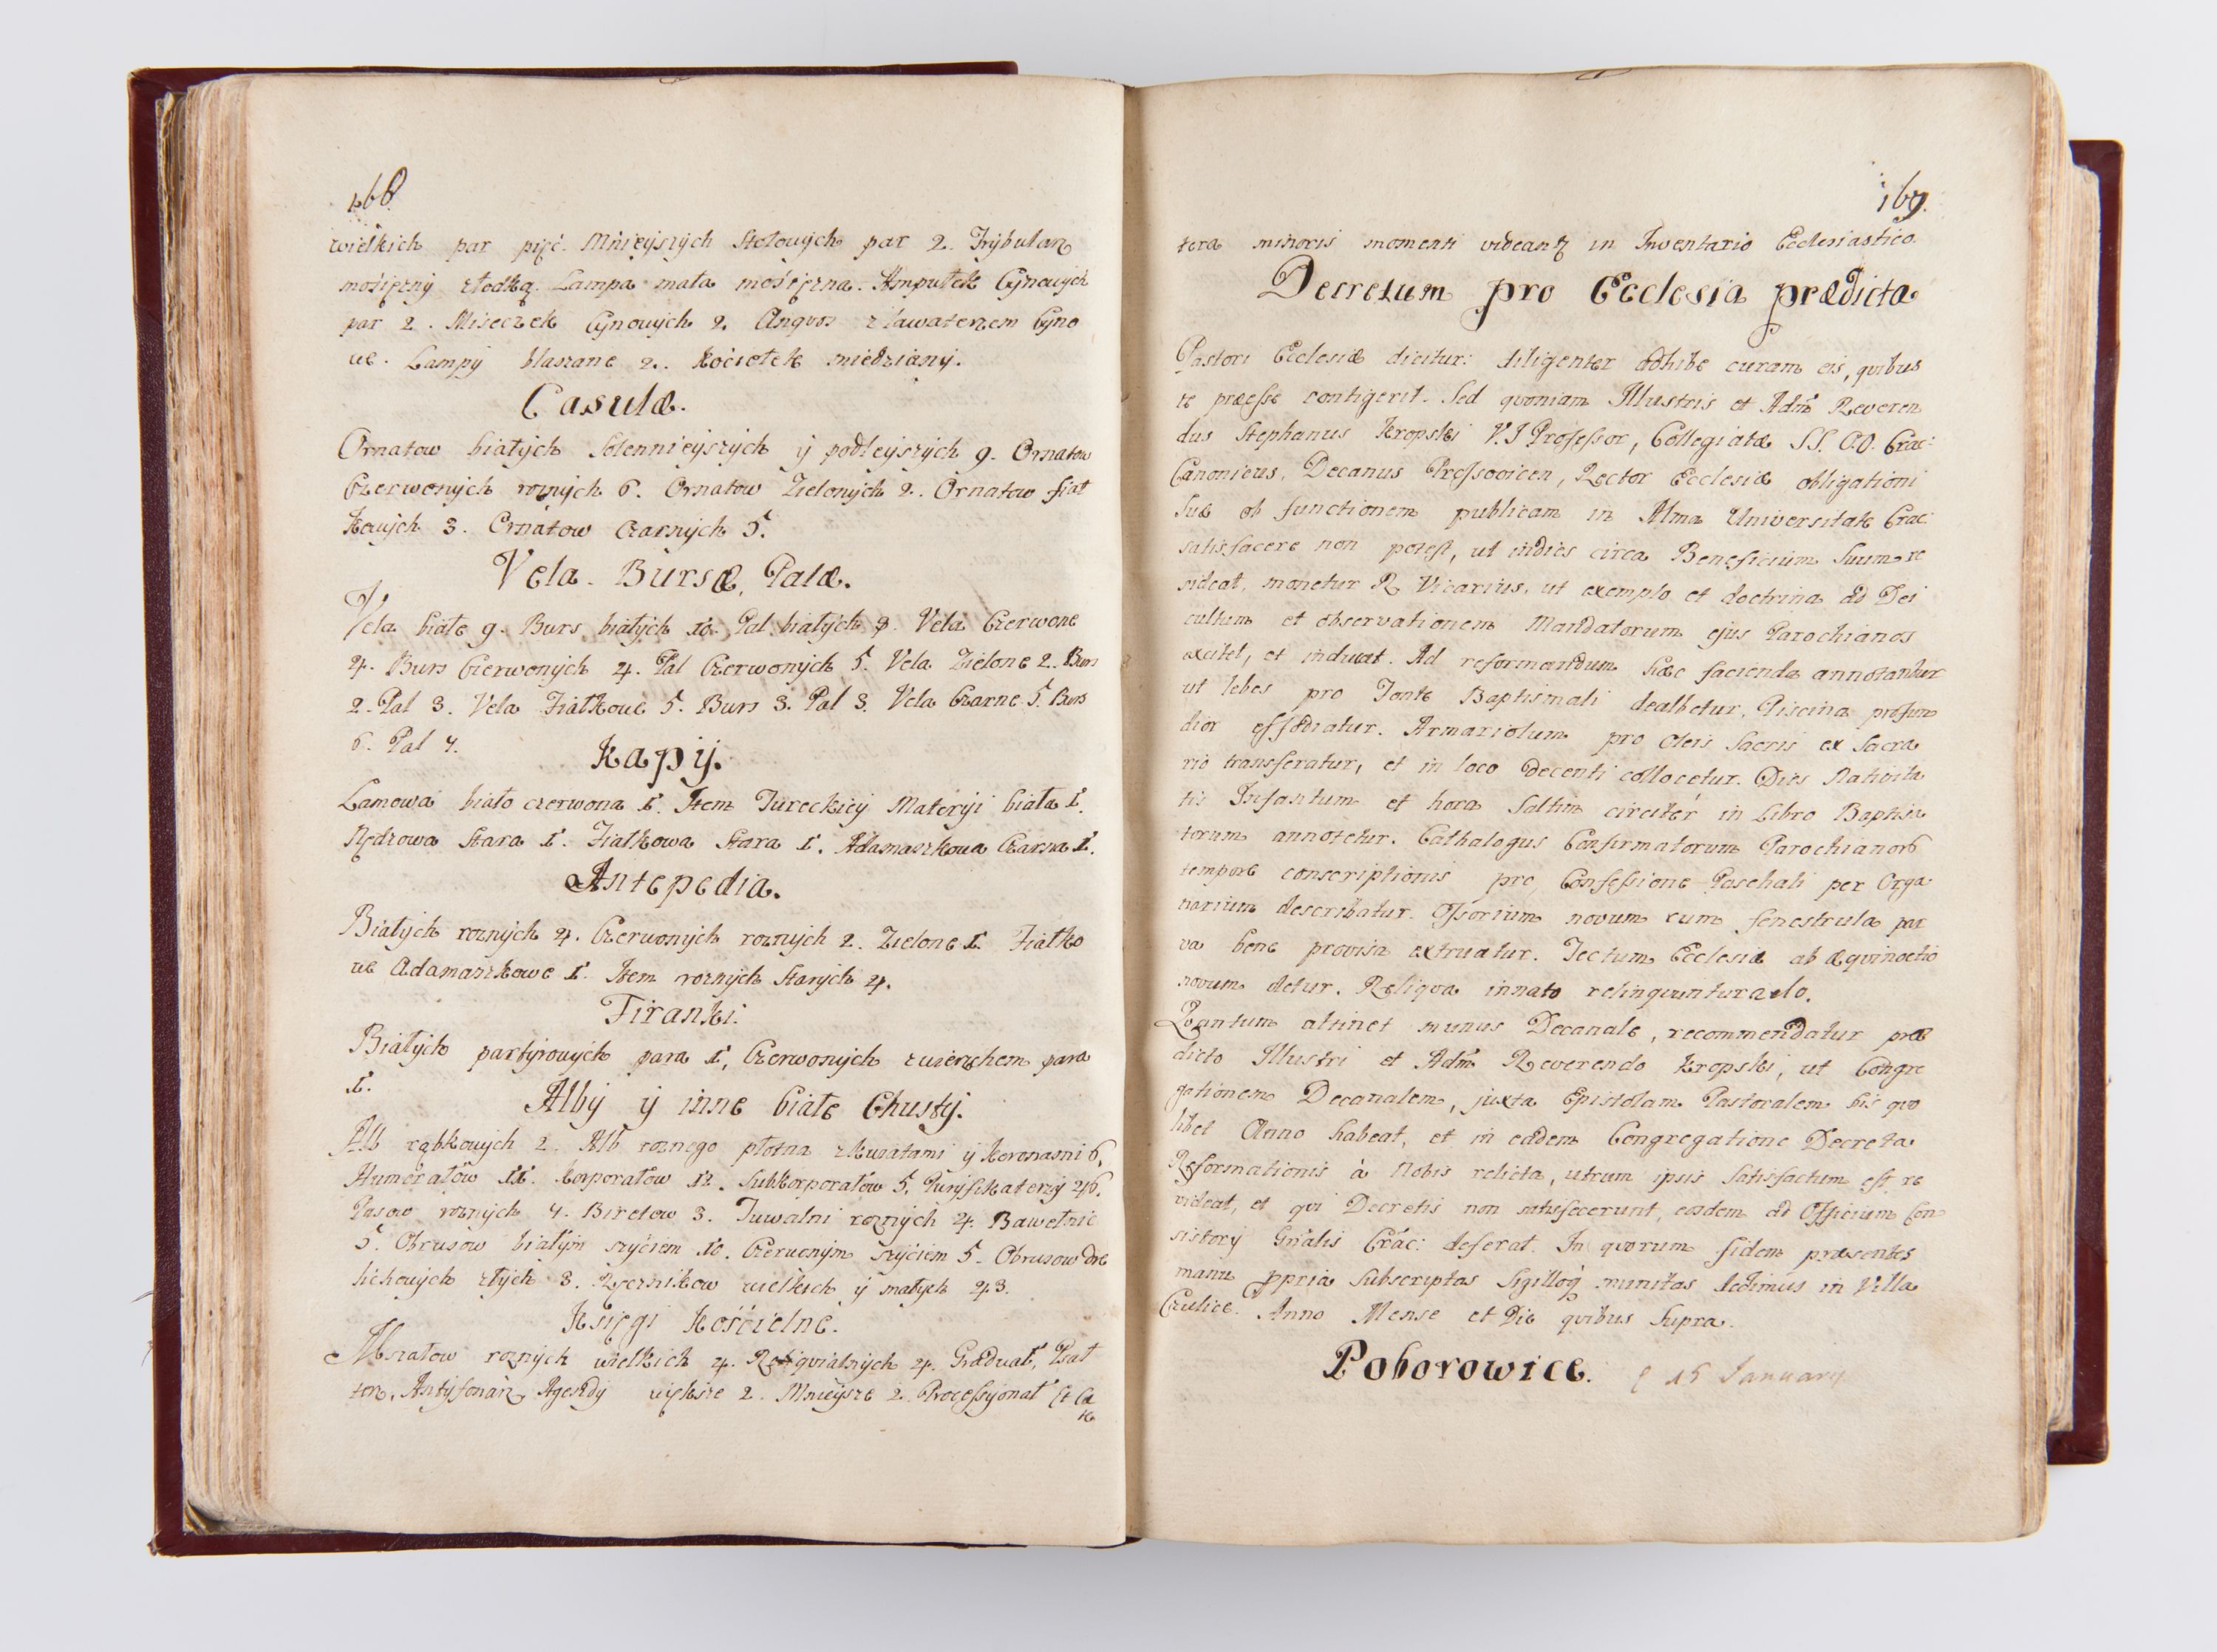 168.
wielkich par pięć. Mnieyszych stołowych par 2. Trybularz
mosiężny złodką. Lampa mała mosiężna. Ampułek Cynowych
par 2. Miseczek Cynowych 2. Angvos z lawaterzem Cyno
we. Lampy blaszane 2. Kociołek miedziany.
Casulæ.
Ornatow białych solennieyszych y podleyszych 9. Ornatow
Czerwonych roznych 6. Ornatow Zielonych 2. Ornatow fiał
kowych 3. Ornatow Czarnych 5.
Vela. Bursæ, Palæ.
Vela białe 9. Burs białych 10. Pal białych 8. Vela Czerwone
4. Burs Czerwonych 4. Pal Czerwonych 5. Vela Zielone 2. Burs
2. Pal 3. Vela Fiałkowe 5. Burs 3. Pal 3. Vela Czarne 5. Burs
6. Pal 4.
Kapy.
Lamowa biało czerwona 1. Item Tureckiey Materyi biała 1.
Rędzowa stara 1. Fiałkowa stara 1. Adamaszkowa Czarna 1.
Antepedia.
Białych roznych 4. Czerwonych roznych 2. Zielone 1. Fiałko
we Adamaszkowe 1. Item roznych starych 4.
Firanki.
Białych partyrowych para 1, Czerwonych zwierzchem para
1.
Alby y inne białe Chusty.
Alb rąbkowych 2. Alb roznego płotna zkwiatami y koronami 6.
Humerałow 11. Korporałow 12. Subkorporałow 5. Puryfikaterzy 46.
Pasow roznych 4. Biretow 3. Tuwalni roznych 4. Bawełnic
5. Obrusow białym szyciem 10. Czerwonym szyciem 5. Obrusow dre
lichowych złych 3. Ręcznikow wielkich y małych 43.
Księgi Kościelne.
Mszałow roznych wielkich 4. Reqvialnych 4. Gradvał, Psał
terz, Antyfonarz, Agendy większe 2. Mnieysze 2. Processyonał Et Cæ
169.
tera minoris momenti videantur in Inventario Ecclesiastico.
Decretum pro Ecclesia prædicta
Pastori Ecclesiæ dicitur: diligenter adhibe curam eis, quibus
te præesse contigerit. Sed quoniam Illustris et Adm Reveren
dus Stephanus Kropski V.J Professor, Collegiatæ SS. OO. Crac:
Canonicus, Decanus Prossovicen, Rector Ecclesiæ obligationi
suæ ob functionem publicam in Alma Universitate Crac:
satisfacere non potest, ut indies circa Beneficium suum re
sideat, monetur R Vicarius, ut exemplo et doctrina ad Dei
cultum et observationem Mandatorum ejus Parochianos
excitet, et inducat. Ad reformandum hæc facienda annotantur
ut lebes pro Fonte Baptismali dealbetur, Piscina profun
dior effodiatur. Armariolum pro Oleis Sacris ex Sacra
rio transferatur, et in loco decenti collocetur. Dies Nativita
tis Infantum et hora saltim circiter in Libro Baptisa
torum annotetur. Cathalogus Confirmatorum Parochianor
tempore conscriptionis pro Confessione Paschali per Orga
narium describatur. Ossorium novum cum fenestrula par
va bene provisa extruatur. Tectum Ecclesiæ ab æquinoctio
novum detur. Reliqva innato relinquuntur zelo.
Qvantum attinet munus Decanale, recommendatur præ
dicto Illustri et Adm Reverendo Kropski, ut Congre
gationem Decanalem, juxta Epistolam Pastoralem bis quo
libet Anno habeat, et in eadem Congregatione Decreta
Reformationis à Nobis relicta, utrum ipsis satisfactum est re
videat, et qui Decretis non satisfecerunt, eosdem ad Officium Con
sistory Gnalis Crac: deferat. In quorum fidem præsentes
manu ppria subscriptas Sigilloq munitas dedimus in Villa
Czulice. Anno Mense et Die quibus supra.
Poborowice. 15 January